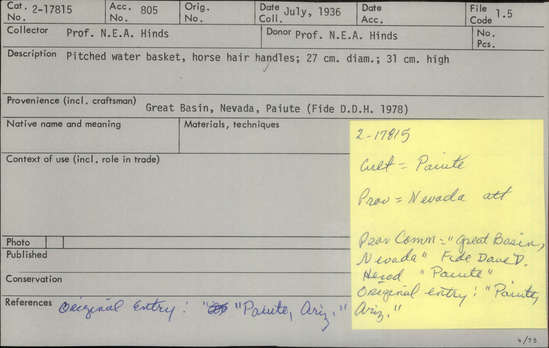 Cat. No. 2-17815 Acc. No. 805 Orig. No. Date Coll. July, 1936 Date Acc. File Code 1.5
Collector Prof. N.E.A. Hinds Donor Prof. N.E.A. Hinds No. Pcs.
Description Pitched water basket, horse hair handles; 27 cm. diam.; 31 cm. high
Provenience (incl. craftsman) Great Basin, Nevada, Paiute (Fide D.D.H. 1978)
Native name and meaning Materials, techniques
Context of use (incl. role in trade)
Photo
Published
Conservation
References Original Entry: "Paiute, Ariz."
2-17815
Cult = Paiute
Prov = Nevada att
Prov Comm = "Great Basin,
Nevada" Fide Dave D.
Herod "Paiute"
Original entry: "Paiute,
Ariz."
4/73